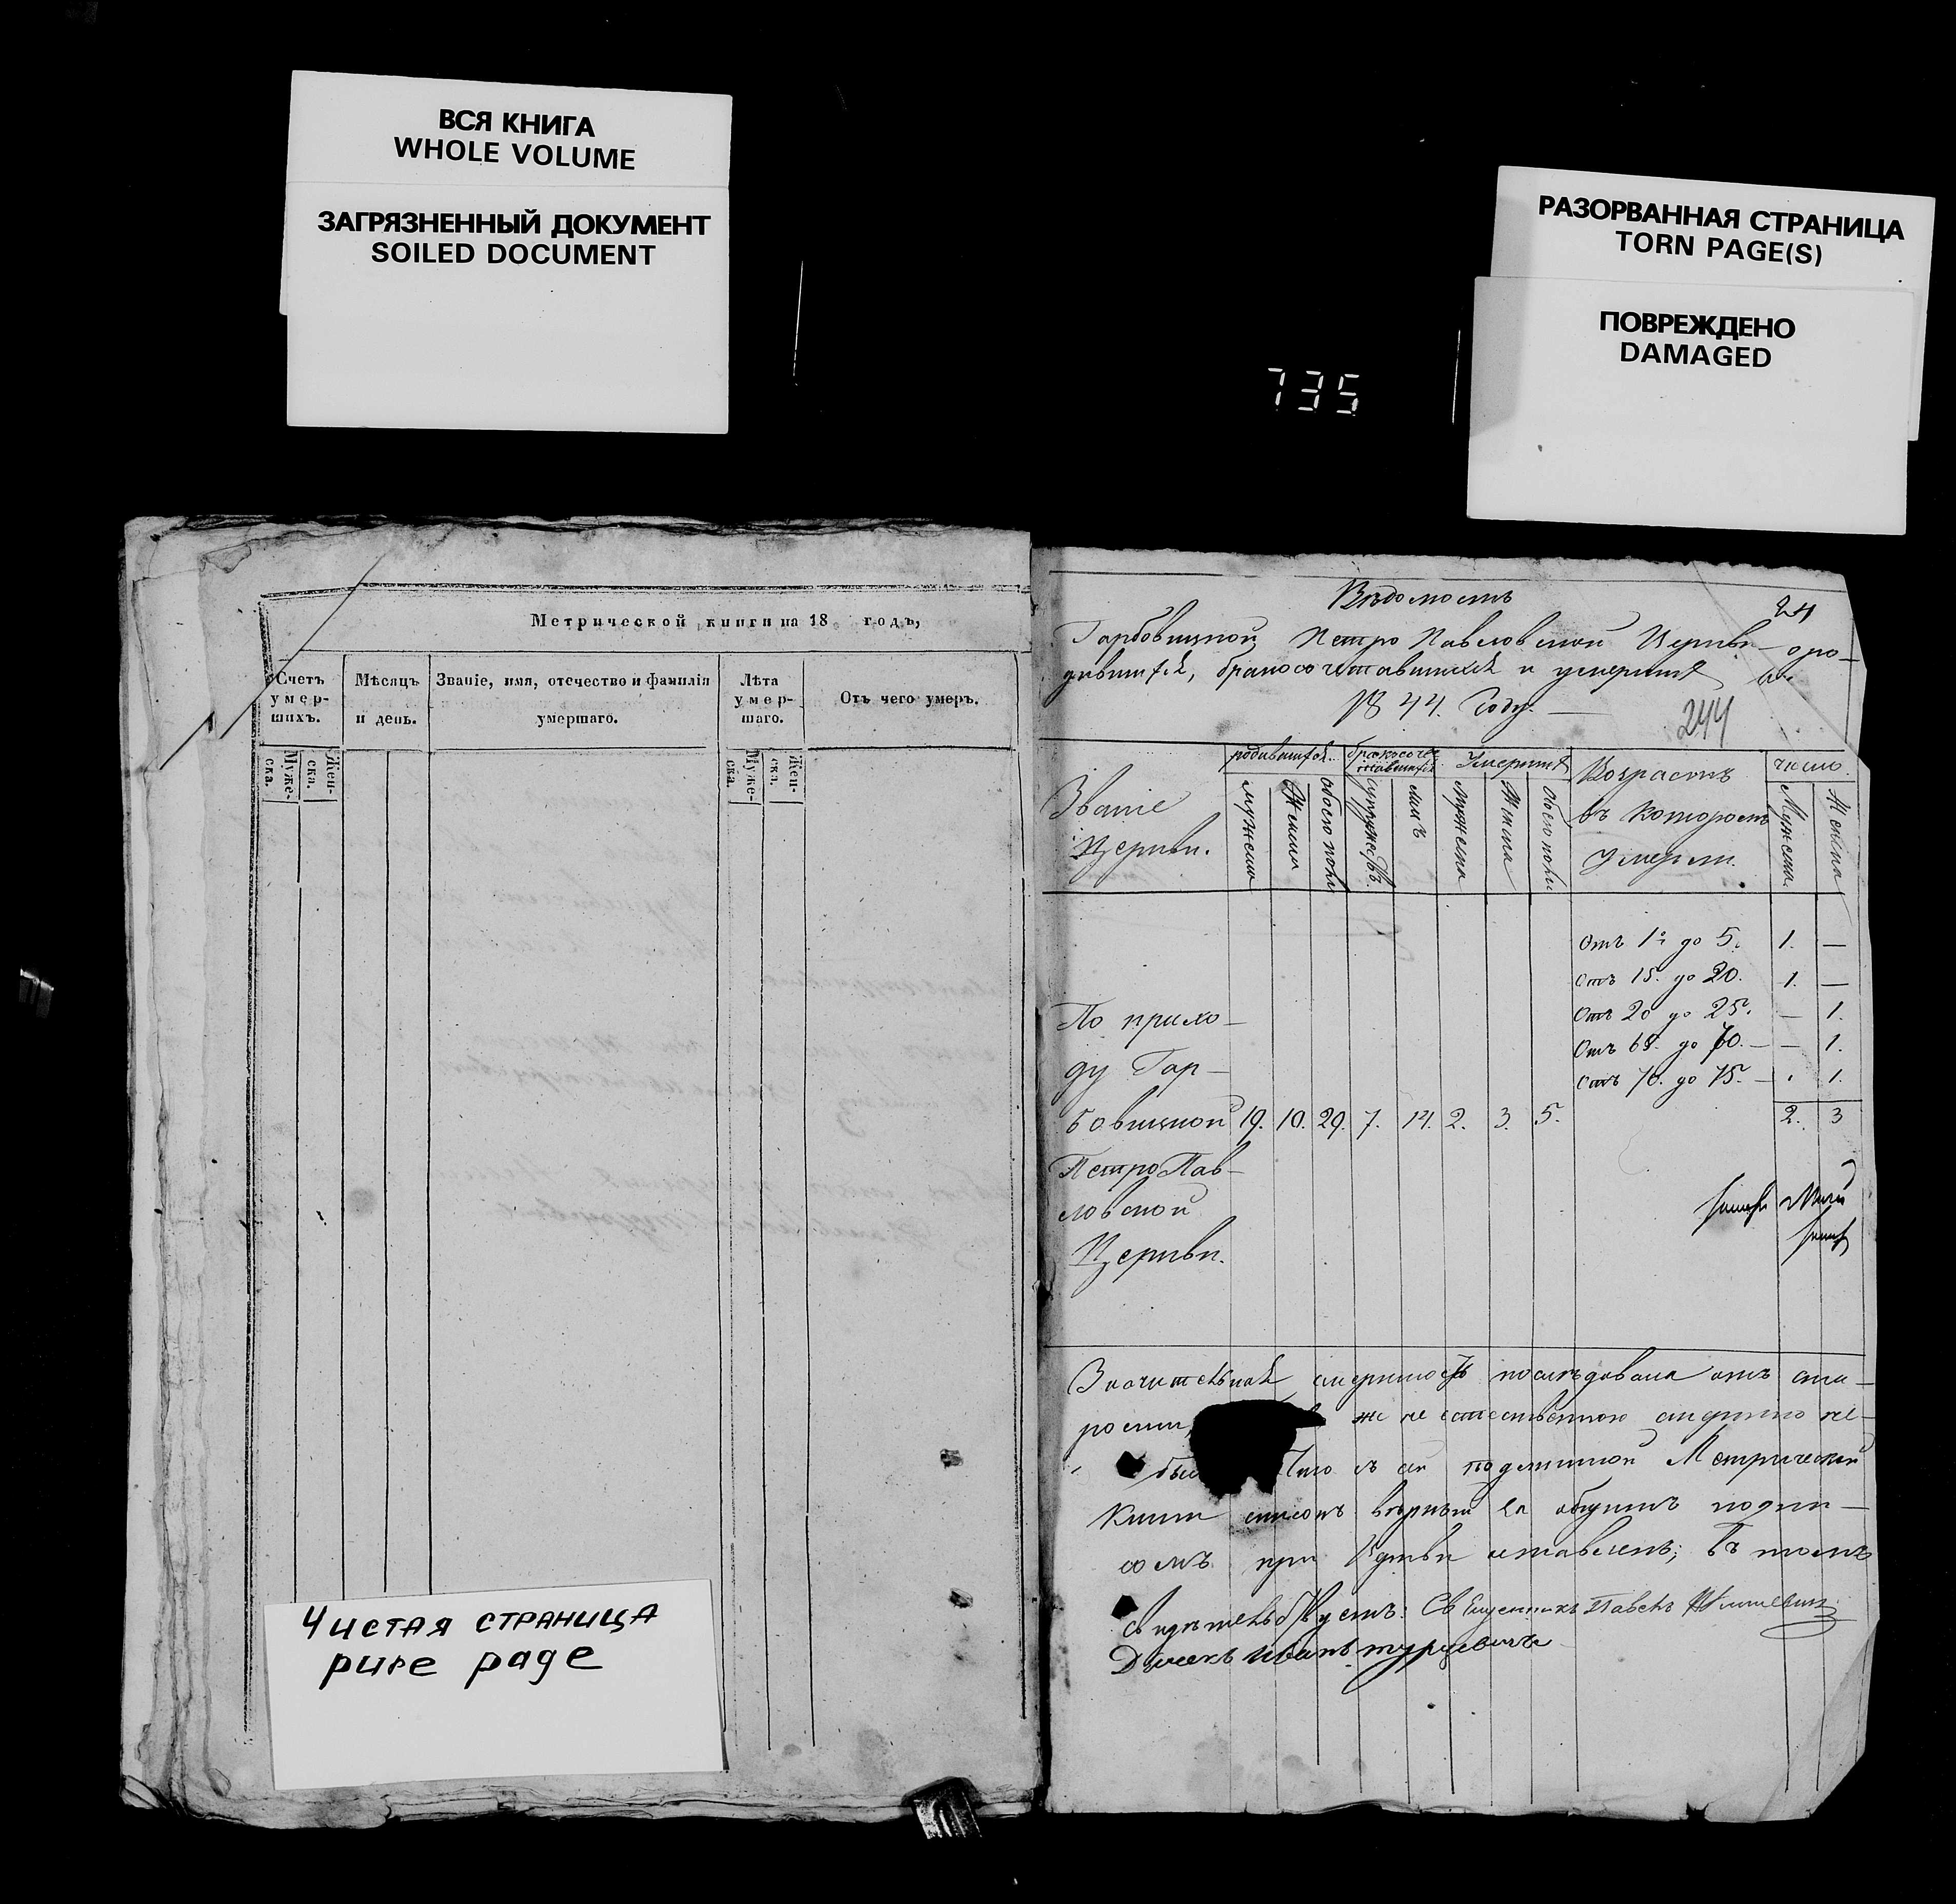 ВСЯ КНИГА
WHOLE VOLUME
ЗАГРЯЗНЕННЫЙ ДОКУМЕНТ
SOILED DOCUMENT
РАЗОРВАННАЯ СТРАНИЦА
TORN PAGE(S)
ПОВРЕЖДЕНО
DAMAGED
735
Метрической книги на 18 годъ,
Счетъ умер-шихъ.
Мѣсяцъ и день.
Званіе, имя, отечество и фамилія умершаго.
Лѣта умер-шаго.
Отъ чего умеръ.
Муже-ска.
Жен-ска.
Муже-ска.
Жен-ска.
Чистая страница
pure page
Вѣдомость
24
Горбовицкой Петро Павловской Церкви о ро-
дившихся, бракосочетавшихся и умершихъ въ
1844. Году.
244
Званіе Церкви.
родившихся.
бракосоче-тавшихся
Умершихъ
Возрастъ въ которомъ умерли.
число
мужеска
женска
обоего пола
супружествъ
лицъ
мужеска
женска
обоего пола
Мужеска
Женска
Отъ 1го до 5. 1. —
Отъ 15. до 20. 1. —
Отъ 20 до 25. — 1.
Отъ 65. до 70. — 1.
Отъ 70. до 75. — 1.
По прихо-
ду Гор-
бовицкой 19. 10. 29. 7. 14. 2. 3. 5. 2. 3
Петро Пав-
ловской
Церкви.
Значительная смертность послѣдовала отъ ста-
рости, же не естественною смертію не
был Что съ сей подлинной Метрической
Книги списокъ вѣрный за общимъ подпи-
сомъ при Церкви оставленъ; въ томъ
Свидѣтельствуемъ: Священникъ Павелъ
Дьячекъ Иванъ Турцевичъ